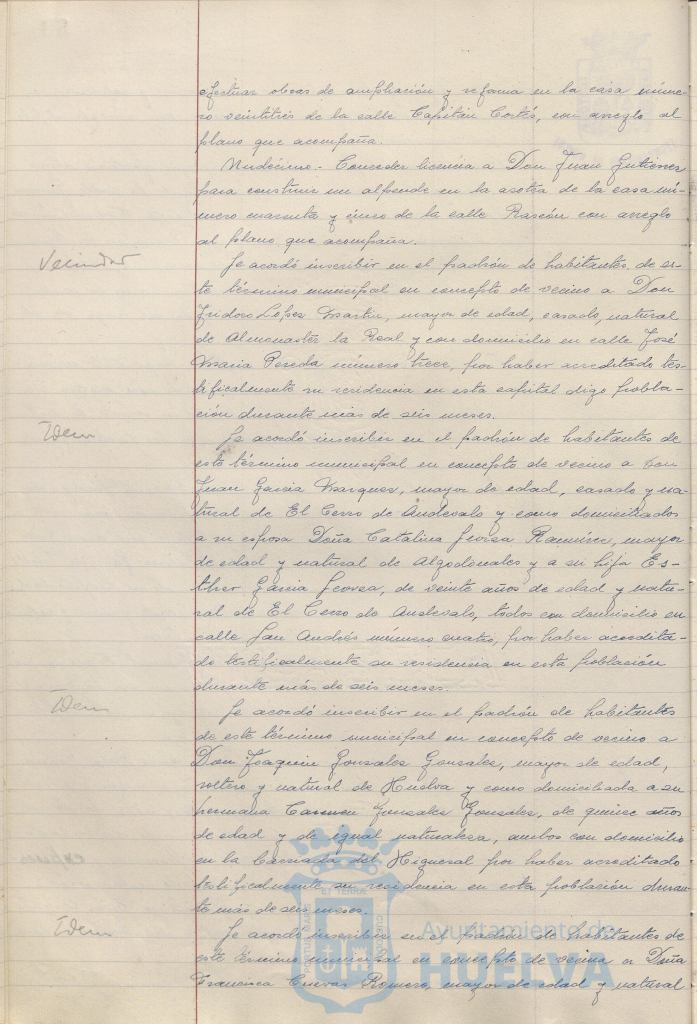 efectuar obras de ampliación y reforma en la casa núme-
ro veintitrés de la calle Capitán Cortés, con arreglo al
plano que acompaña.
Undécimo.- Conceder licencia a Don Juan Gutiérrez
para construir un alpende en la azotea de la casa nú-
mero cuarenta y cinco de la calle Rascón con arreglo
al plano que acompaña.
Vecindad
Se acordó inscribir en el padrón de habitantes de es-
te término municipal en concepto de vecino a Don
Isidoro López Martin, mayor de edad, casado, natural
de Almonaster la Real y con domicilio en calle José
Maria Pereda número trece, por haber acreditado tes-
tificalmente su residencia en esta capital digo pobla-
ción durante más de seis meses.
Idem
Se acordó inscribir en el padrón de habitantes de
este término municipal en concepto de vecino a Don
Juan Garcia Marquez, mayor de edad, casado y na-
tural de El Cerro de Andevalo y como domiciliados
a su esposa Doña Catalina Ramirez, mayor
de edad y natural de Algodonales y a su hija Es-
ther Garcia, de veinte años de edad y natu-
ral de El Cerro de Andevalo, todos con domicilio en
calle San Andrés número cuatro, por haber acredita-
do testificalmente su residencia en esta población
durante más de seis meses.
Idem
Se acordó inscribir en el padrón de habitantes
de este término municipal en concepto de vecino a
Don Joaquin Gonzalez Gonzalez, mayor de edad,
soltero y natural de Huelva y como domiciliada a su
hermana Carmen Gonzalez Gonzalez, de quince años
de edad y de igual naturaleza, ambos con domicilio
en la Barriada del Higueral por haber acreditado
testificalmente su residencia en esta población duran-
te más de seis meses.
Idem
Se acordó inscribir en el padrón de habitantes de
este término municipal en concepto de vecina a Doña
Francisca Cuevas Romero, mayor de edad y natural
Ayuntamiento de
HUELVA